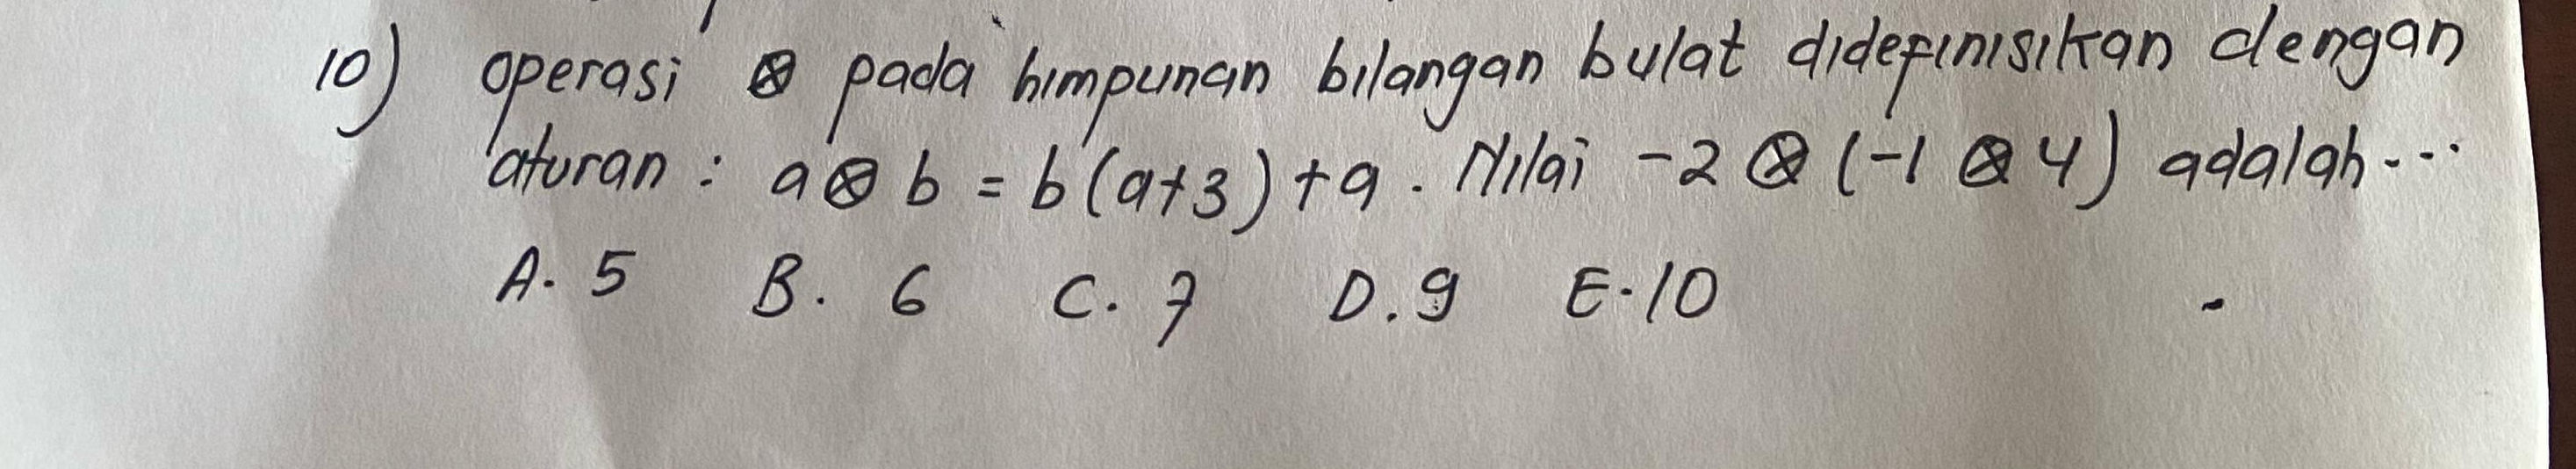 10) operasi ⊗ pada himpunan bilangan bulat didefinisikan dengan
aturan : a ⊗ b = b(a+3)+a. Nilai -2 ⊗ (-1 ⊗ 4) adalah...
A. 5 B. 6 C. 7 D. 9 E. 10